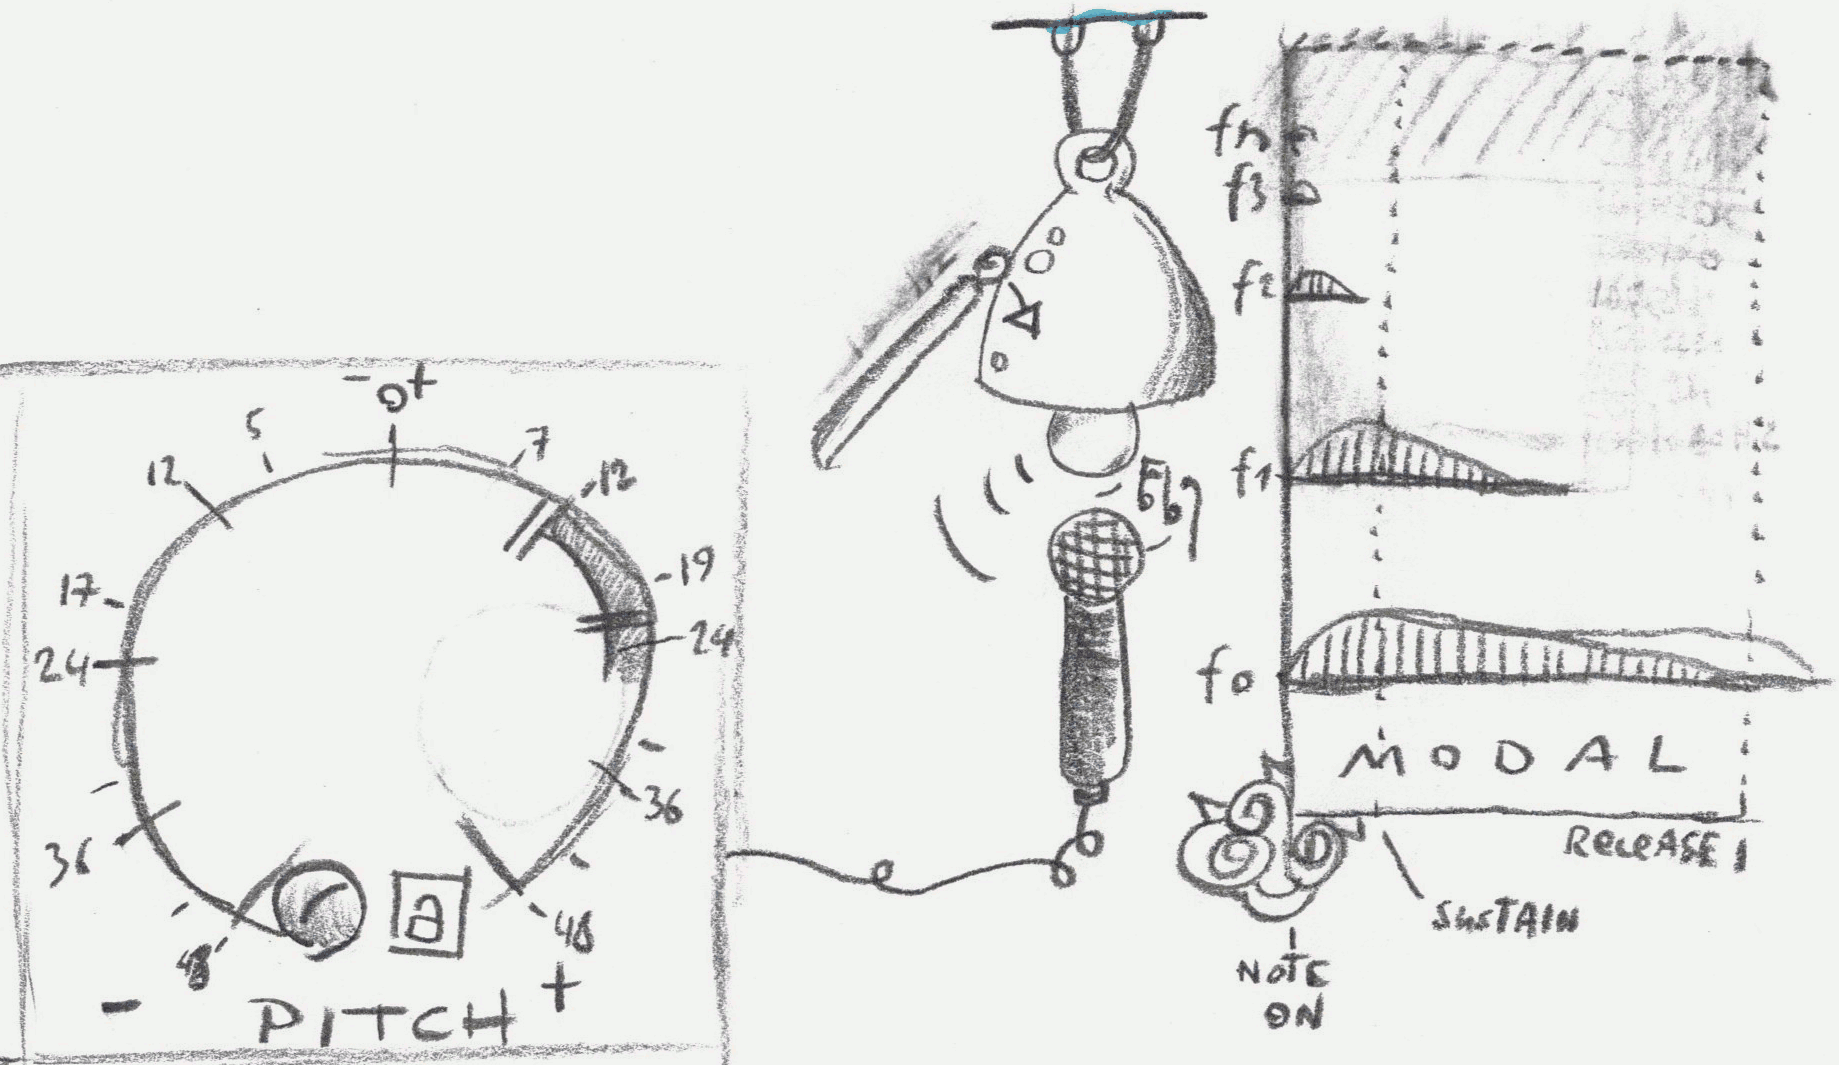 - 0 +
5
7
12
12
17
19
24
24
36
36
48
48
a
- PITCH +
fn
f3
f2
f1
f0
MODAL
RELEASE
SUSTAIN
NOTE
ON